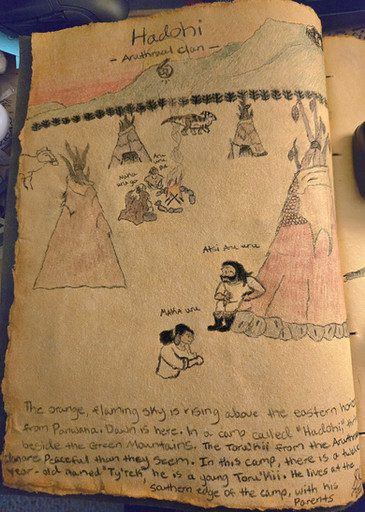 Hadohi
- Anuthrawl Clan -
Anu
uru
Maha
uru
Atsi Anu uru
Maha uru
The orange, flaming sky is rising above the eastern
from Dawn is here. In a camp called "Hadohi"
beside the Green Mountains. The Toru'kii from the
are more Peaceful than they seem. In this camp, there is a
year-old named "Ty'Teh" he is a young Toru'Kii. He lives at the
southern edge of the camp, with his
Parents